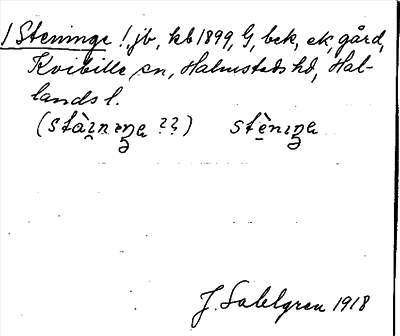 /Steninge/, jb, kb 1899, G, bek, ek, gård,
Kvibille sn, Halmstads hd, Hal-
lands l.
(stàɪ̯nɪŋa ??) stènɪŋa
J. Sahlgren 1918